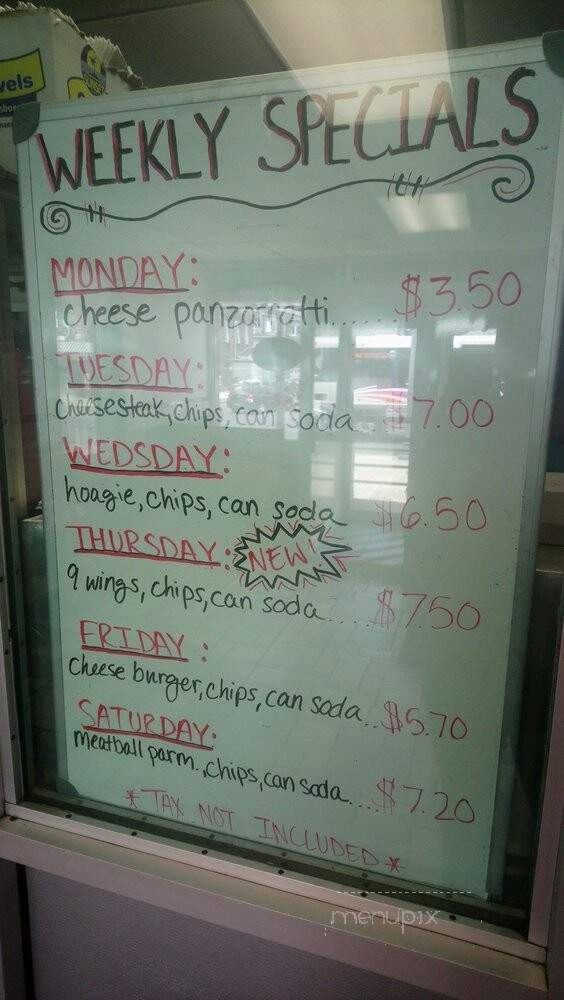 wels
WEEKLY SPECIALS
MONDAY:
cheese panzarrotti...... $3.50
TUESDAY:
cheesesteak, chips, can soda... $7.00
WEDSDAY:
hoagie, chips, can soda $6.50
THURSDAY: NEW!
9 wings, chips, can soda..... $7.50
FRIDAY:
cheese burger, chips, can soda.. $5.70
SATURDAY:
meatball parm., chips, can soda.... $7.20
*TAX NOT INCLUDED*
menupix